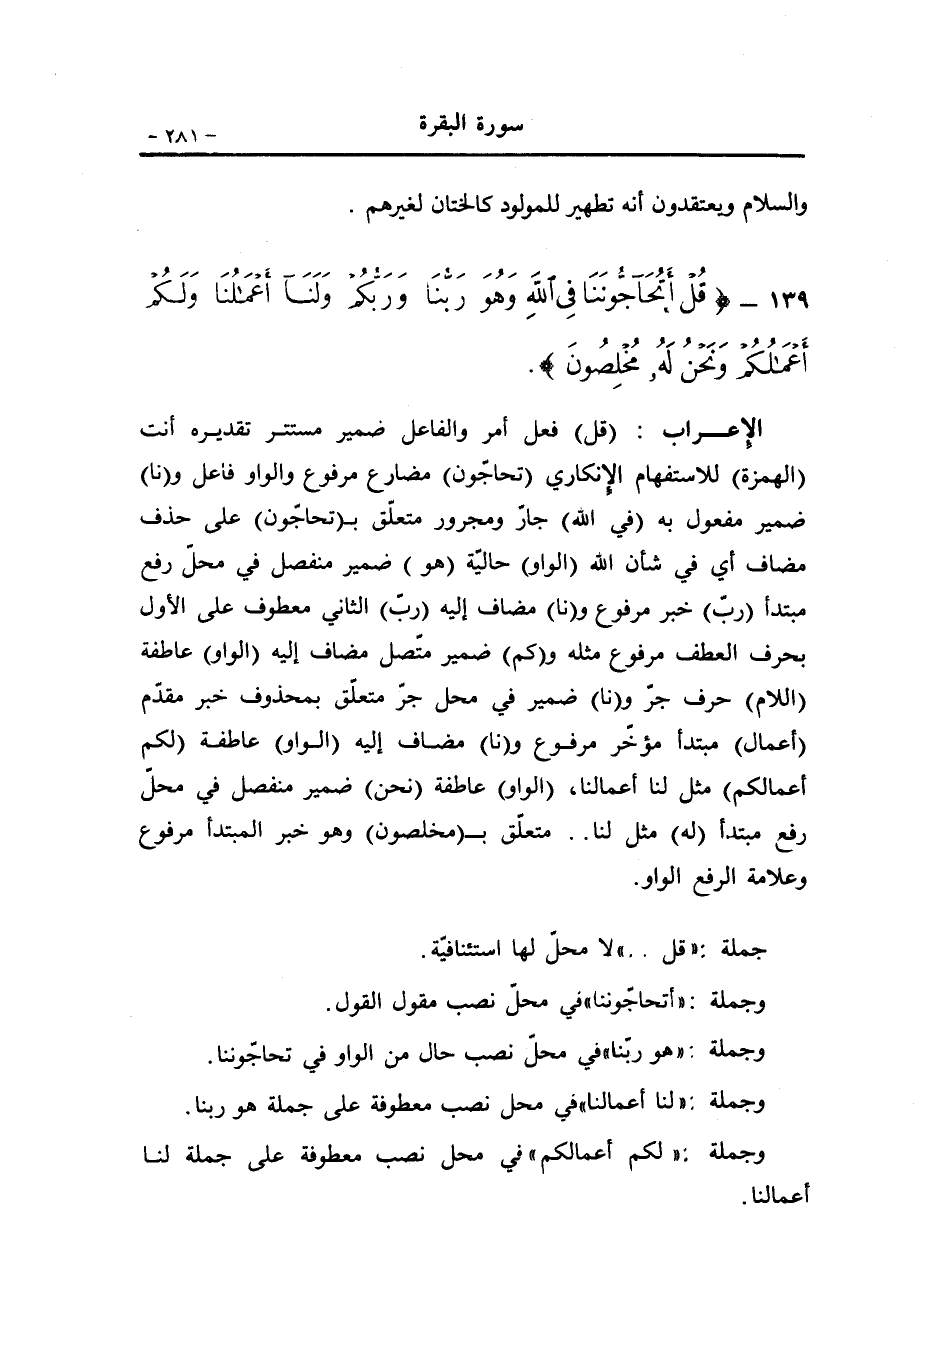 سورة البقرة
- ٢٨١ -
والسلام ويعتقدون أنه تطهير للمولود كالختان لغيرهم .
١٣٩ - ﴿ قُلْ أَتُحَآجُّونَنَا فِي ٱللَّهِ وَهُوَ رَبُّنَا وَرَبُّكُمْ وَلَنَآ أَعْمَٰلُنَا وَلَكُمْ
أَعْمَٰلُكُمْ وَنَحْنُ لَهُۥ مُخْلِصُونَ ﴾ .
الإعـــراب : (قل) فعل أمر والفاعل ضمير مستتر تقديره أنت
(الهمزة) للاستفهام الإنكاري (تحاجّون) مضارع مرفوع والواو فاعل و(نا)
ضمير مفعول به (في الله) جارّ ومجرور متعلّق بـ(تحاجّون) على حذف
مضاف أي في شأن الله (الواو) حاليّة (هو ) ضمير منفصل في محلّ رفع
مبتدأ (ربّ) خبر مرفوع و(نا) مضاف إليه (ربّ) الثاني معطوف على الأول
بحرف العطف مرفوع مثله و(كم) ضمير متّصل مضاف إليه (الواو) عاطفة
(اللام) حرف جرّ و(نا) ضمير في محل جرّ متعلّق بمحذوف خبر مقدّم
(أعمال) مبتدأ مؤخّر مرفـوع و(نا) مضـاف إليه (الـواو) عاطفـة (لكم
أعمالكم) مثل لنا أعمالنا، (الواو) عاطفة (نحن) ضمير منفصل في محلّ
رفع مبتدأ (له) مثل لنا.. متعلّق بـ(مخلصون) وهو خبر المبتدأ مرفوع
وعلامة الرفع الواو.
جملة :«قل . . .»لا محلّ لها استئنافيّة.
وجملة :«أتحاجّوننا»في محلّ نصب مقول القول.
وجملة :«هو ربّنا»في محلّ نصب حال من الواو في تحاجّوننا.
وجملة :«لنا أعمالنا»في محل نصب معطوفة على جملة هو ربنا.
وجملة :« لكم أعمالكم» في محل نصب معطوفة على جملة لنـا
أعمالنا.